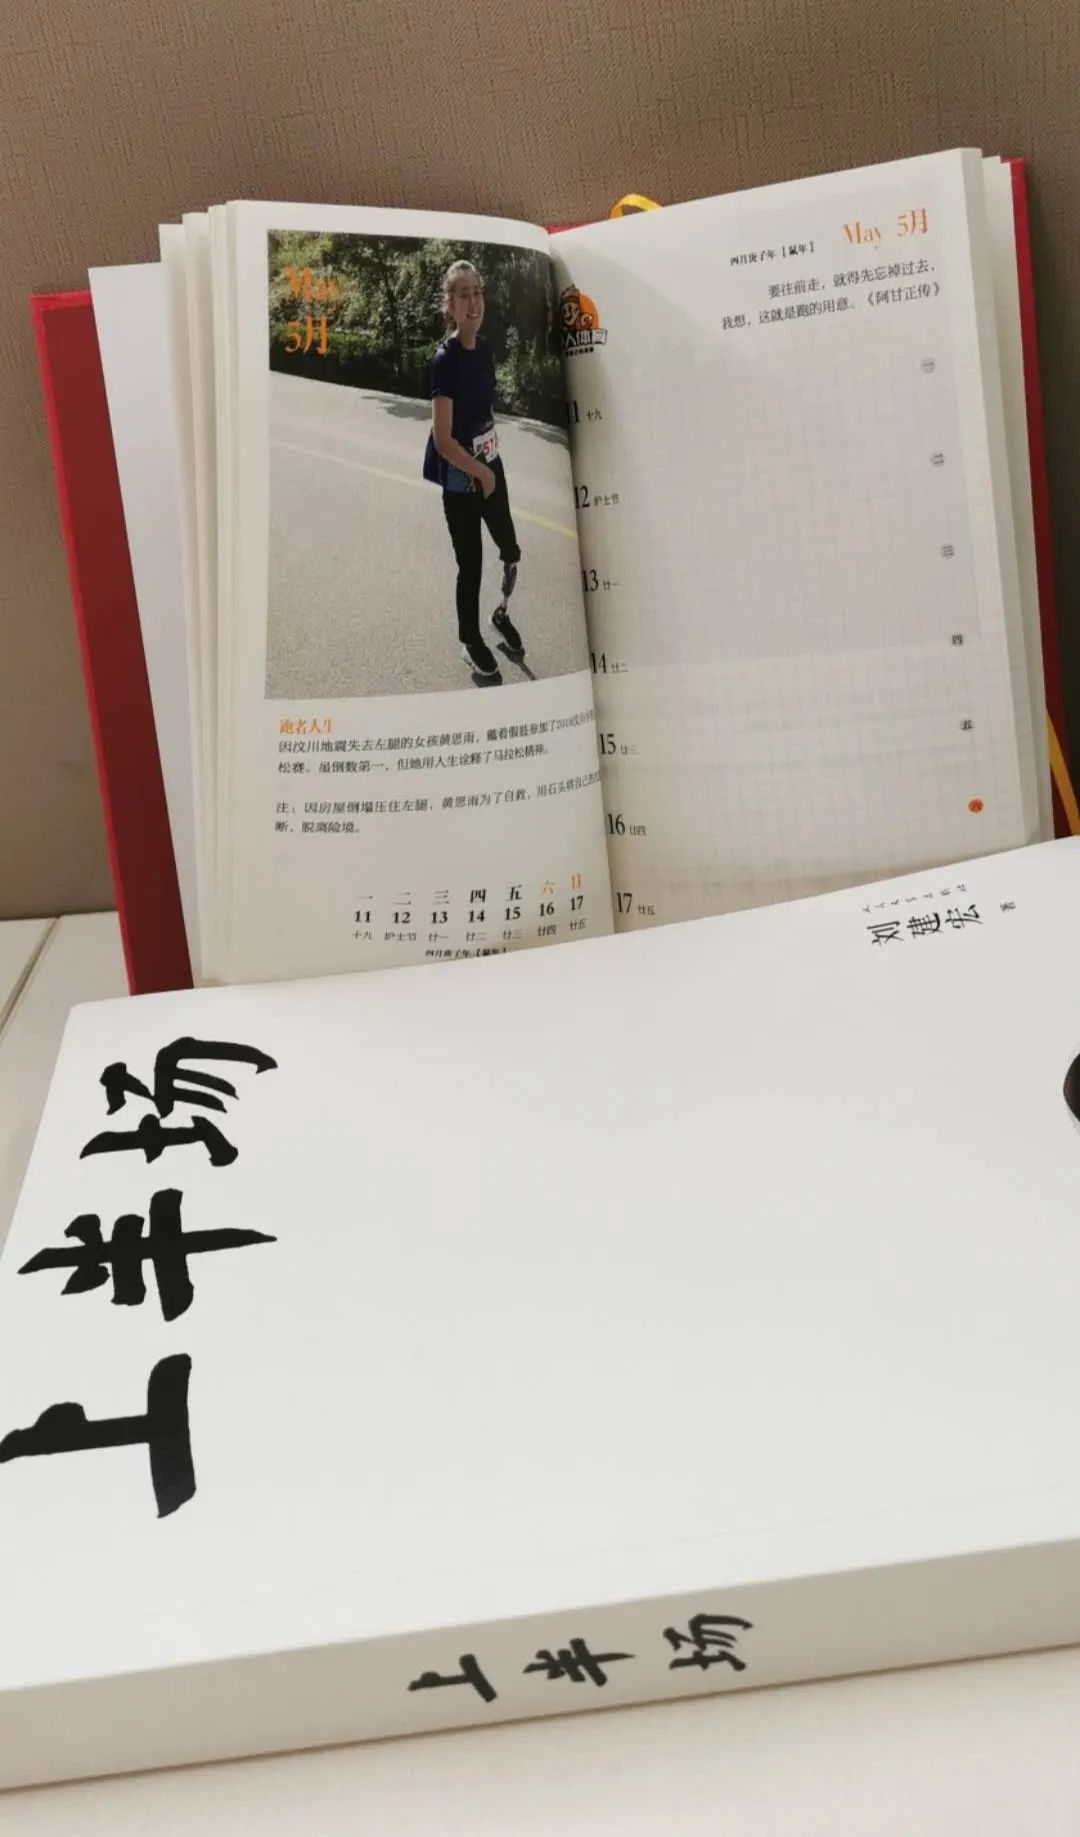 May
5月
跑者人生
因汶川地震失去左腿的女孩黄思雨，戴着假肢参加了2018汶川
松赛。虽倒数第一，但她用人生诠释了马拉松精神。
注：因房屋倒塌压住左腿，黄思雨为了自救，用石头将自己的
断，脱离险境。
一 二 三 四 五 六 日
11 12 13 14 15 16 17
十九 护士节 廿一 廿二 廿三 廿四 廿五
四月庚子年【鼠年】
May 5月
四月庚子年【鼠年】
要往前走，就得先忘掉过去，
我想，这就是跑的用意。《阿甘正传》
人体育
11 十九
一
12 护士节
二
13 廿一
三
14 廿二
四
15 廿三
五
16 廿四
六
17 廿五
刘建宏 著
上半场
上半场